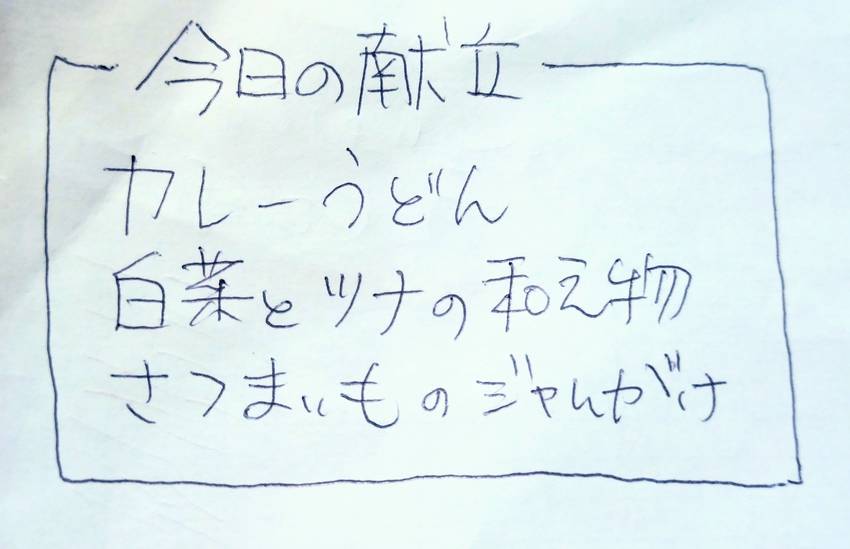 今日の献立
カレーうどん
白菜とツナの和え物
さつまいものジャムがけ